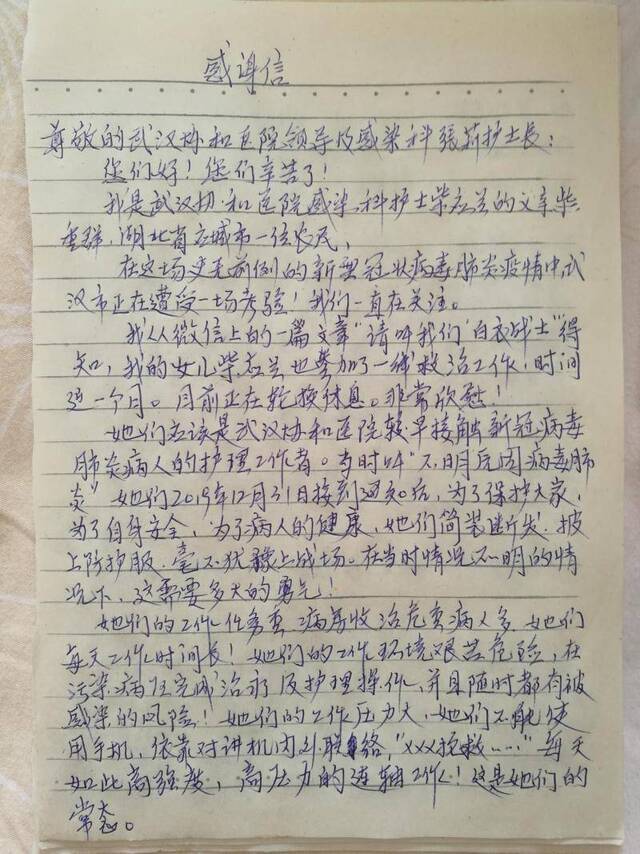 感谢信
尊敬的武汉协和医院领导及感染科張莉护士長：
您们好！您们辛苦了！
我是武汉协和医院感染科护士柴应兰的父亲柴
重群，湖北省应城市一位农民，
在这场史无前例的新型冠状病毒肺炎疫情中武
汉市正在遭受一场考验！我们一直在关注。
我从微信上的一篇文章“请叫我们‘白衣战士’得
知，我的女儿柴应兰也參加了一线救治工作，时间
近一个月。目前正在轮换休息。非常欣慰！
她们应该是武汉协和医院较早接触新冠病毒
肺炎病人的护理工作者。当时叫“不明原因病毒肺
炎”她们2019年12月31日接到通知后，为了保护大家，
为了自身安全，为了病人的健康，她们简装断发，披
上防护服，毫不犹豫上战场。在当时情况不明的情
况下，这需要多大的勇气！
她们的工作任务重，病房收治危重病人多，她们
每天工作时间長！她们的工作环境艰苦危险，在
污染病区完成治疗及护理操作，并且随时都有被
感染的风险！她们的工作压力大，她们不能使
用手机，依靠对讲机内外联络“xxx抢救……”每天
如此高强度，高压力的连轴工作！这是她们的
常态。